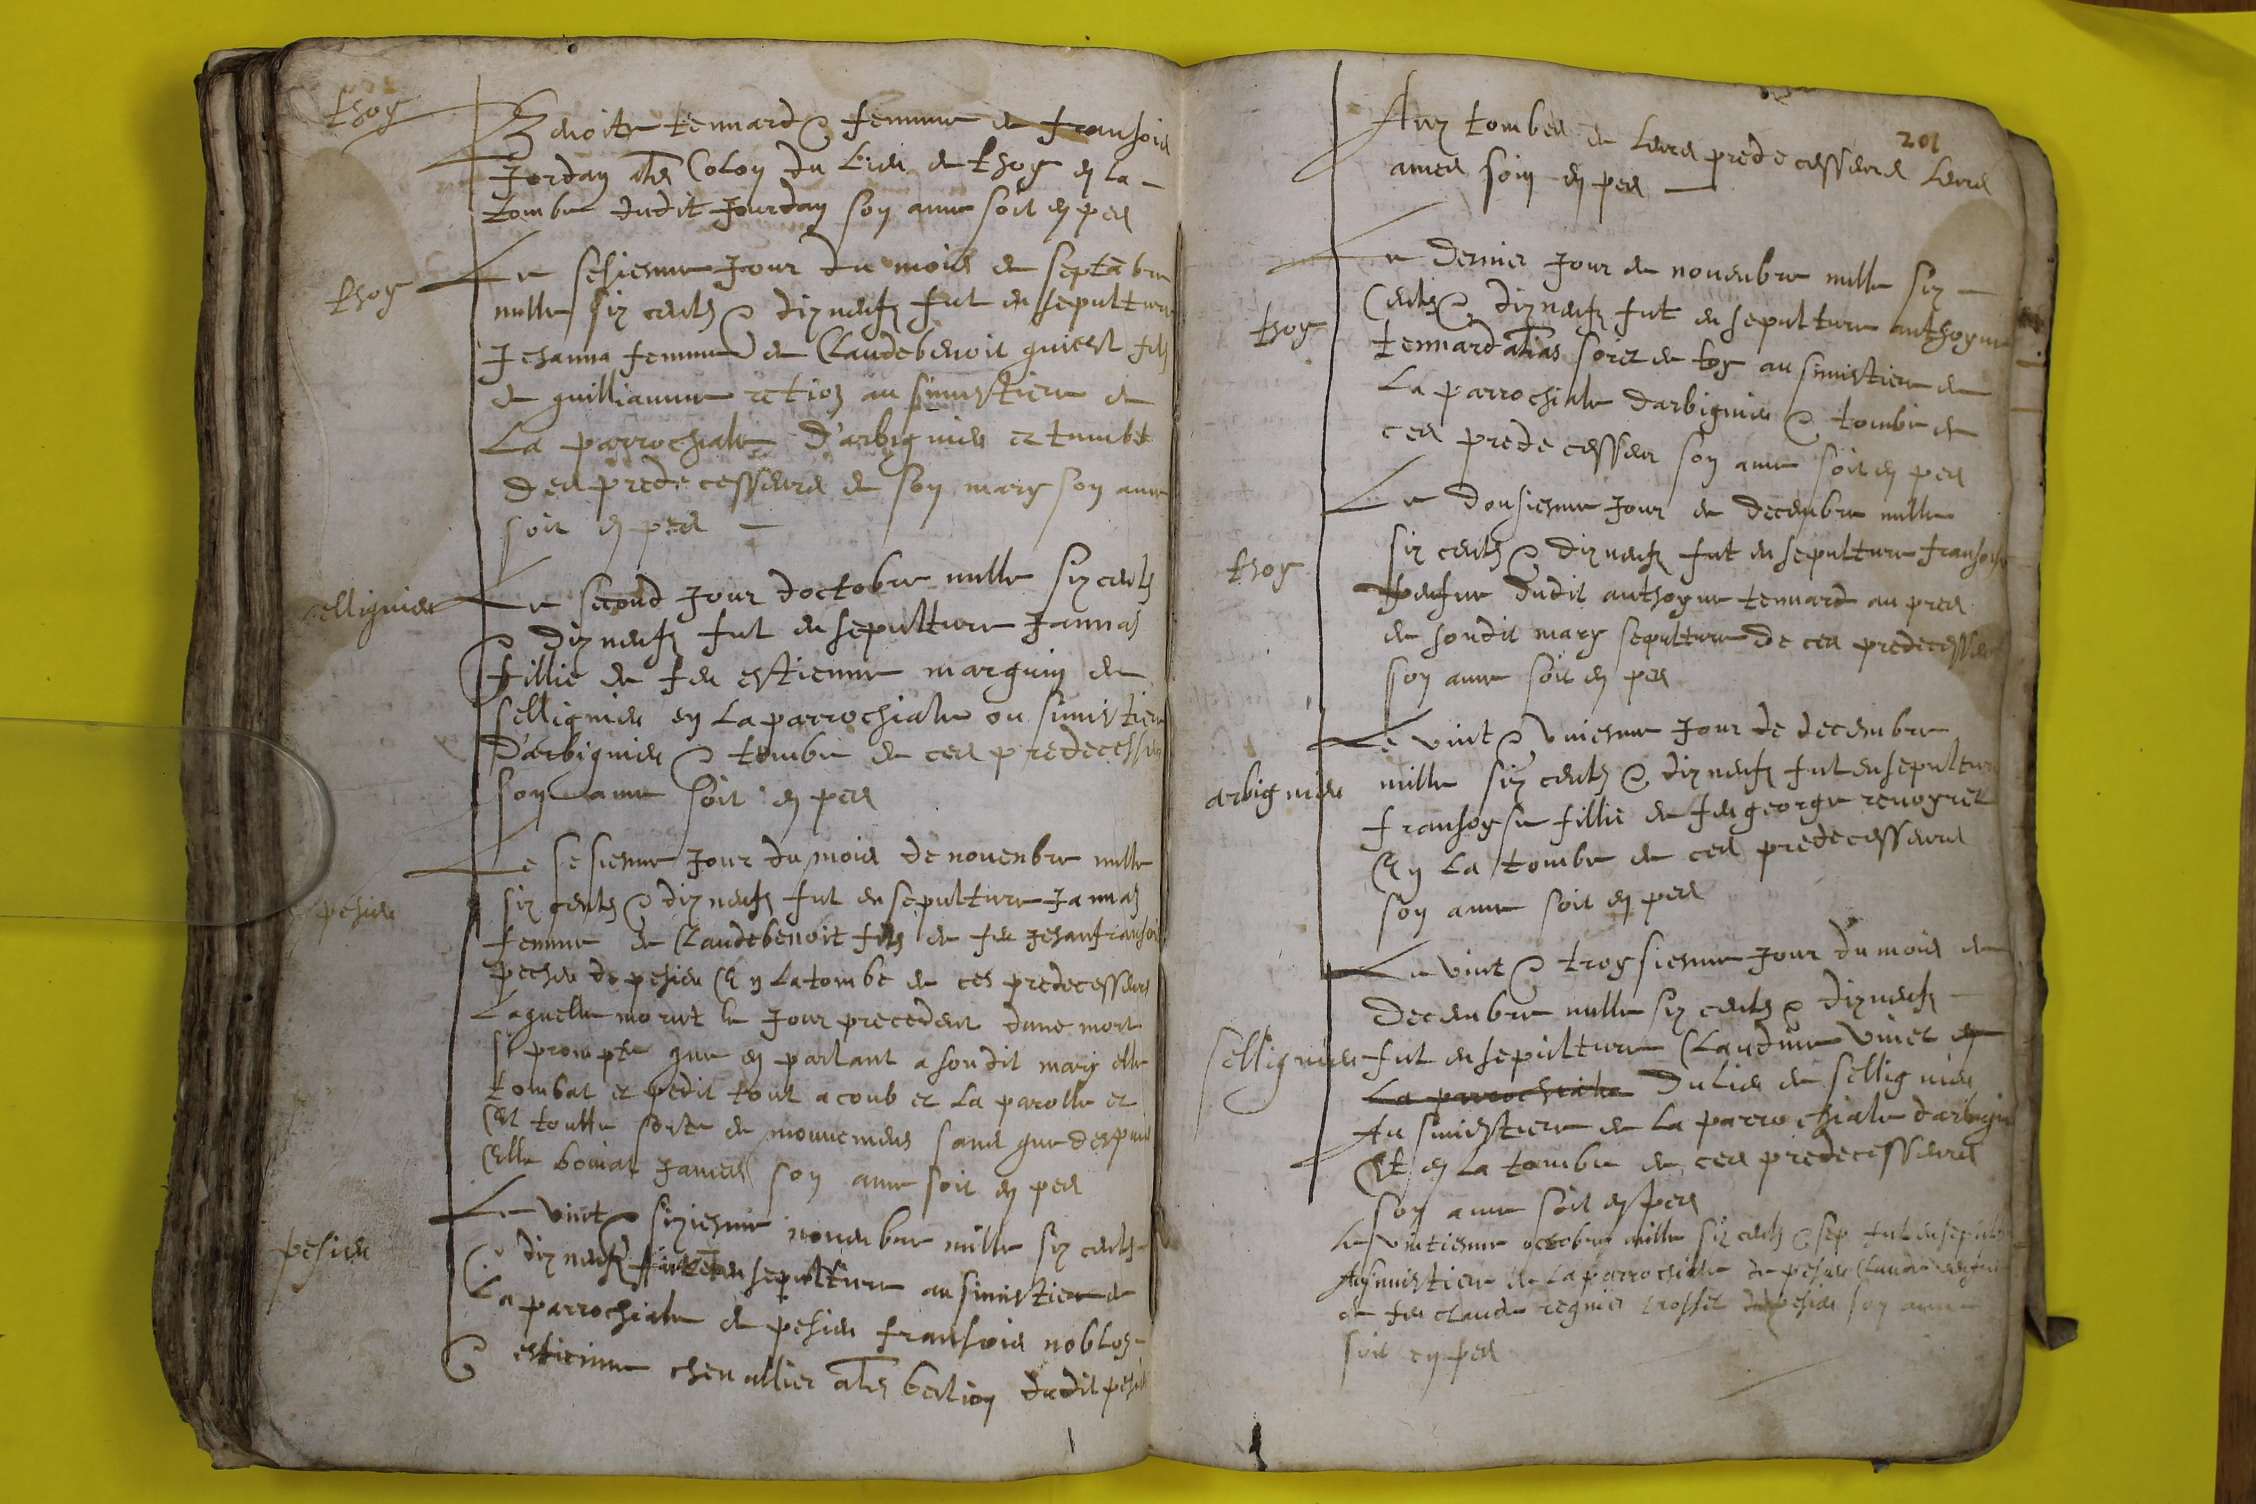 thoy
Benoite tennard femme de fransois
Jorday als Coloy du Lieu de thoy en la
tombe dudit Jourday soy ame soit en pes
thoy
Le sesiesme Jour du mois de septabre
mille six cents & dix neufz fut ensepulture
Jehanna femme de Claudebenoit filz
de guilliaume au simistiere de
La parrochiale D'arbignieu et tumbe
des predecesseurs de soy mary soy ame
soit en pes
sellignieu
Le second Jour doctobre mille six cents
& dix neufz fut ensepulture Janna
fillie de feu estienne marguin de
sellignieu en La parrochiale ou simistiere
D'arbignieu & tombe de ces predecesseurs
soy ame soit en pes
pesieu
Le sesiesme Jour du mois de novenbre mille
six cents & dix neufz fut ensepulture Janna
femme de Claudebenoit filz de feu Jehanfransois
pecheu de pesieu Ey La tombe de ces predecesseurs
Laquelle morut le Jour precedent dune mort
si prompte que en parlant a sondit mary elle
tombat et pedit tout a coub et La parolle et
Et toutte sorte de mouvemens sans que despuis
Elle boujat Jamais soy ame soit en pes
pesieu
Le vint & sixiesme novenbre mille six cents
& dix neufz ensepulture au simistiere de
La parrochiale de pesieu fransois
& estienne chevallier als bertion dudit pesieu
201
Aux tombes de Leurs predecesseurs Leurs
ames soiy en pes
thoy
Le dernier Jour de novenbre mille six
Cents & dix neufz fut ensepulture anthoyne
tennard alias soret de toy au simistiere de
La parrochiale darbignieu & tombe de
ces predecesseur soy ame soit en pes
thoy
Le dousiesme Jour de decenbre mille
six cents & dix neufz fut ensepulture fransoyse
veufve dudit anthoyne tennard au pres
de sondit mary sepulture de ces predecesseurs
soy ame soit en pes
arbignieu
Le vint & uniesme Jour de decembre
mille six cents & dix neufz fut ensepulture
fransoyse fillie de feu george renoyret
Ey La tombe de ces predecesseurs
soy ame soit en pes
sellignieu
Le vint & troysiesme Jour du mois de
decenbre mille six cents & dix neufz
fut ensepulture Claudine vivet en
La parrochiale Du Lieu de sellignieu
Au simistiere de La parrochiale darbignieu
Et en La tombe de ces predecesseurs
soy ame soit en pes
Le vintiesme octobre mille six cents & sep fut ensepulture
Au simistiere de La parrochiale de pesieu Claudine
de feu Claude regnier trosset de pesieu soy ame
soit en pes